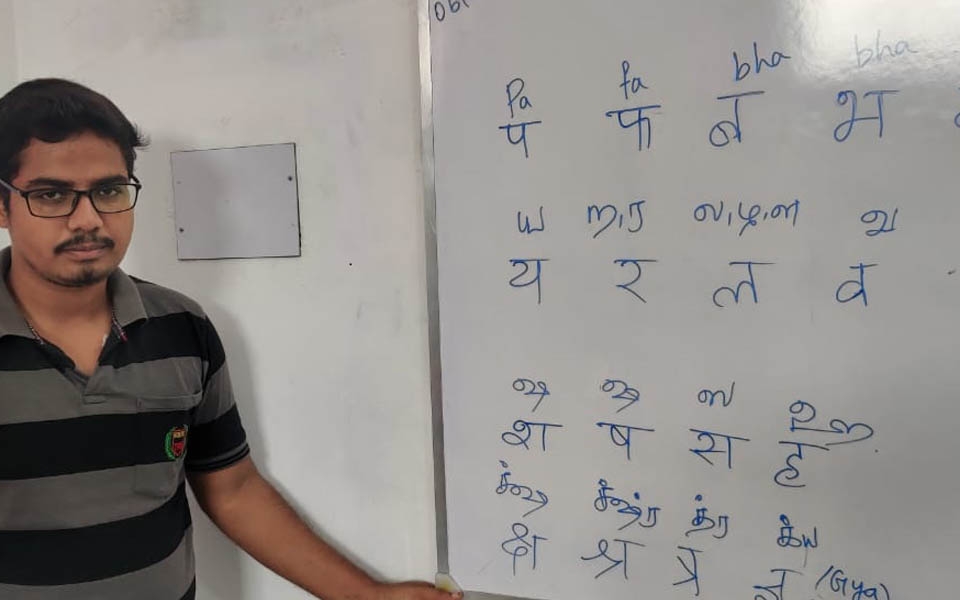 Pa fa bha bha
प फ ब भ
ய ற,ர ல,ழ,ள வ
य र ल व
ஷ ஷ ஸ ஹ
श ष स ह
க்ஷ க்ஷ்ர த்ர க்ய
क्ष श्र त्र ज्ञ (Gya)